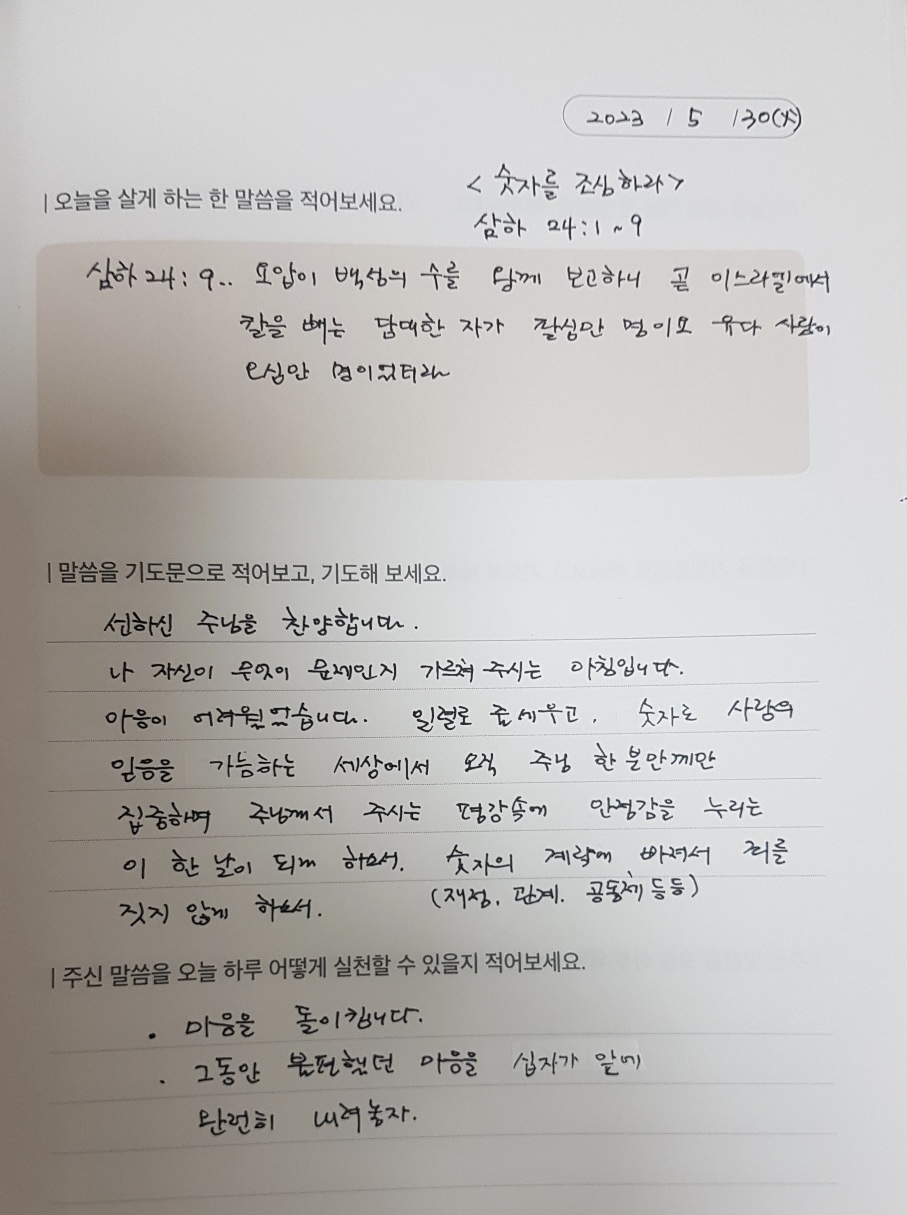 2023 / 5 / 30(火)
<숫자를 조심하라>
| 오늘을 살게 하는 한 말씀을 적어보세요.
삼하 24:1~9
삼하 24:9.. 요압이 백성의 수를 왕께 보고하니 곧 이스라엘에서
칼을 빼는 담대한 자가 팔십만 명이요 유다 사람이
오십만 명이었더라
| 말씀을 기도문으로 적어보고, 기도해 보세요.
선하신 주님을 찬양합니다.
나 자신이 무엇이 문제인지 가르쳐 주시는 아침입니다.
마음이 어려웠었습니다. 일렬로 줄세우고, 숫자로 사람의
믿음을 가늠하는 세상에서 오직 주님 한 분만께만
집중하며 주님께서 주시는 평강속에 안정감을 누리는
이 한 날이 되게 하소서. 숫자의 계략에 빠져서 죄를
짓지 않게 하소서. (재정, 관계. 공동체 등등)
| 주신 말씀을 오늘 하루 어떻게 실천할 수 있을지 적어보세요.
. 마음을 돌이킵니다.
. 그동안 불편했던 마음을 십자가 앞에
완전히 내려놓자.